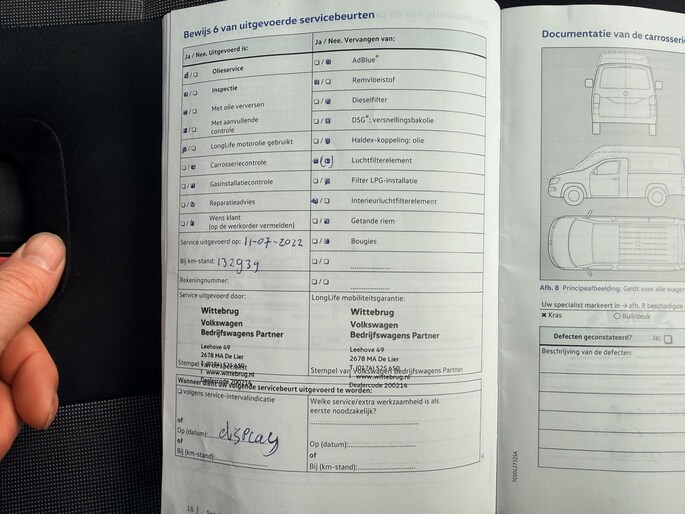 Bewijs 6 van uitgevoerde servicebeurten
Ja / Nee. Uitgevoerd is:
Olieservice
Inspectie
Met olie verversen
Met aanvullende
controle
LongLife motorolie gebruikt
Carrosseriecontrole
Gasinstallatiecontrole
Reparatieadvies
Wens klant
(op de werkorder vermelden)
Service uitgevoerd op: 11-07-2022
Bij km-stand: 132939
Rekeningnummer:
Ja / Nee. Vervangen van:
AdBlue®
Remvloeistof
Dieselfilter
DSG®: versnellingsbakolie
Haldex-koppeling: olie
Luchtfilterelement
Filter LPG-installatie
Interieurluchtfilterelement
Getande riem
Bougies
Service uitgevoerd door:
Wittebrug
Volkswagen
Bedrijfswagens Partner
Leehove 49
2678 MA De Lier
T (0174) 525 650
Dealercode 200214
LongLife mobiliteitsgarantie:
Wittebrug
Volkswagen
Bedrijfswagens Partner
Leehove 49
2678 MA De Lier
Stempel van Volkswagen Bedrijfswagens Partner
T (0174) 525 650
I www.wittebrug.nl
Dealercode 200214
Wanneer dient uw volgende servicebeurt uitgevoerd te worden:
volgens service-intervalindicatie
of
Op (datum): display
of
Bij (km-stand):
Welke service/extra werkzaamheid is als
eerste noodzakelijk?
Op (datum):
of
Bij (km-stand):
16
Documentatie van de carrosserie
Afb. 8 Principeafbeelding: Geldt voor alle wagen
Uw specialist markeert in → afb. 8 beschadigde
Kras Buil/deuk
Defecten geconstateerd? Ja:
Beschrijving van de defecten: